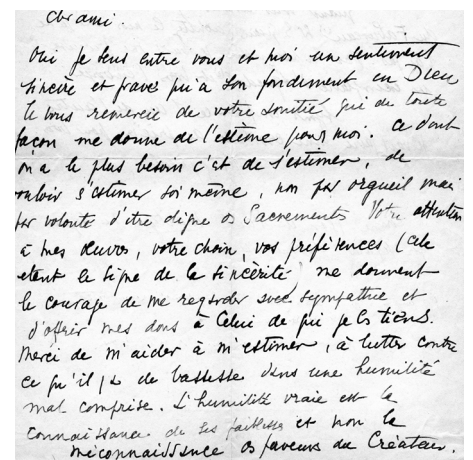 Cher ami.
Oui je sens entre vous et moi un sentiment
sincère et grave qui a son fondement en Dieu
Je vous remercie de votre amitié qui de toute
façon me donne de l'estime pour moi. Ce dont
on a le plus besoin c'est de s'estimer, de
vouloir s'estimer soi même, non par orgueil mais
par volonté d'être digne des Sacrements Votre attention
à mes œuvres, votre choix, vos préférences (cela
étant le signe de la sincérité) me donnent
le courage de me regarder avec sympathie et
d'offrir mes dons à Celui de qui je les tiens.
Merci de m'aider à m'estimer, à lutter contre
ce qu'il y a de bassesse dans une humilité
mal comprise. L'humilité vraie est la
connaissance de ses faiblesses et non la
méconnaissance des faveurs du Créateur.